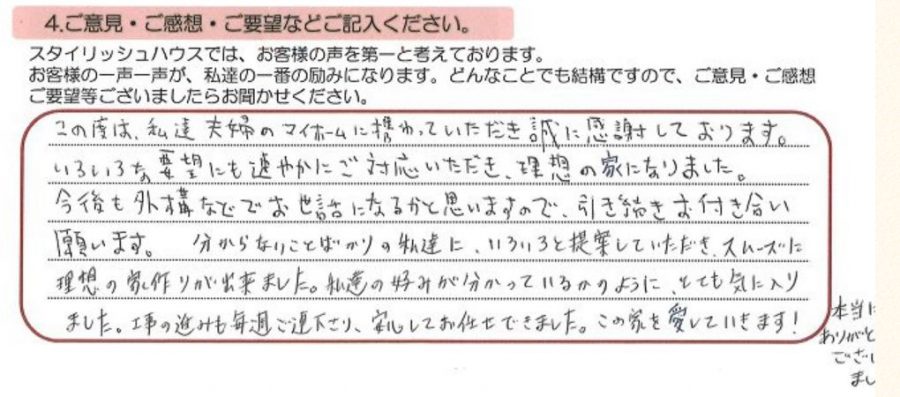 4.ご意見・ご感想・ご要望などご記入ください。
スタイリッシュハウスでは、お客様の声を第一と考えております。
お客様の一声一声が、私達の一番の励みになります。どんなことでも結構ですので、ご意見・ご感想
ご要望等ございましたらお聞かせください。
この度は、私達夫婦のマイホームに携わっていただき誠に感謝しております。
いろいろな要望にも速やかにご対応いただき、理想の家になりました。
今後も外構などでお世話になるかと思いますので、引き続きお付き合い
願います。 分からないことばかりの私達に、いろいろと提案していただき、スムーズに
理想の家作りが出来ました。私達の好みが分かっているかのように、とても気に入り
ました。工事の進みも毎週ご連下さり、安心してお任せできました。この家を愛していきます!
本当に
ありがと
ござい
まし